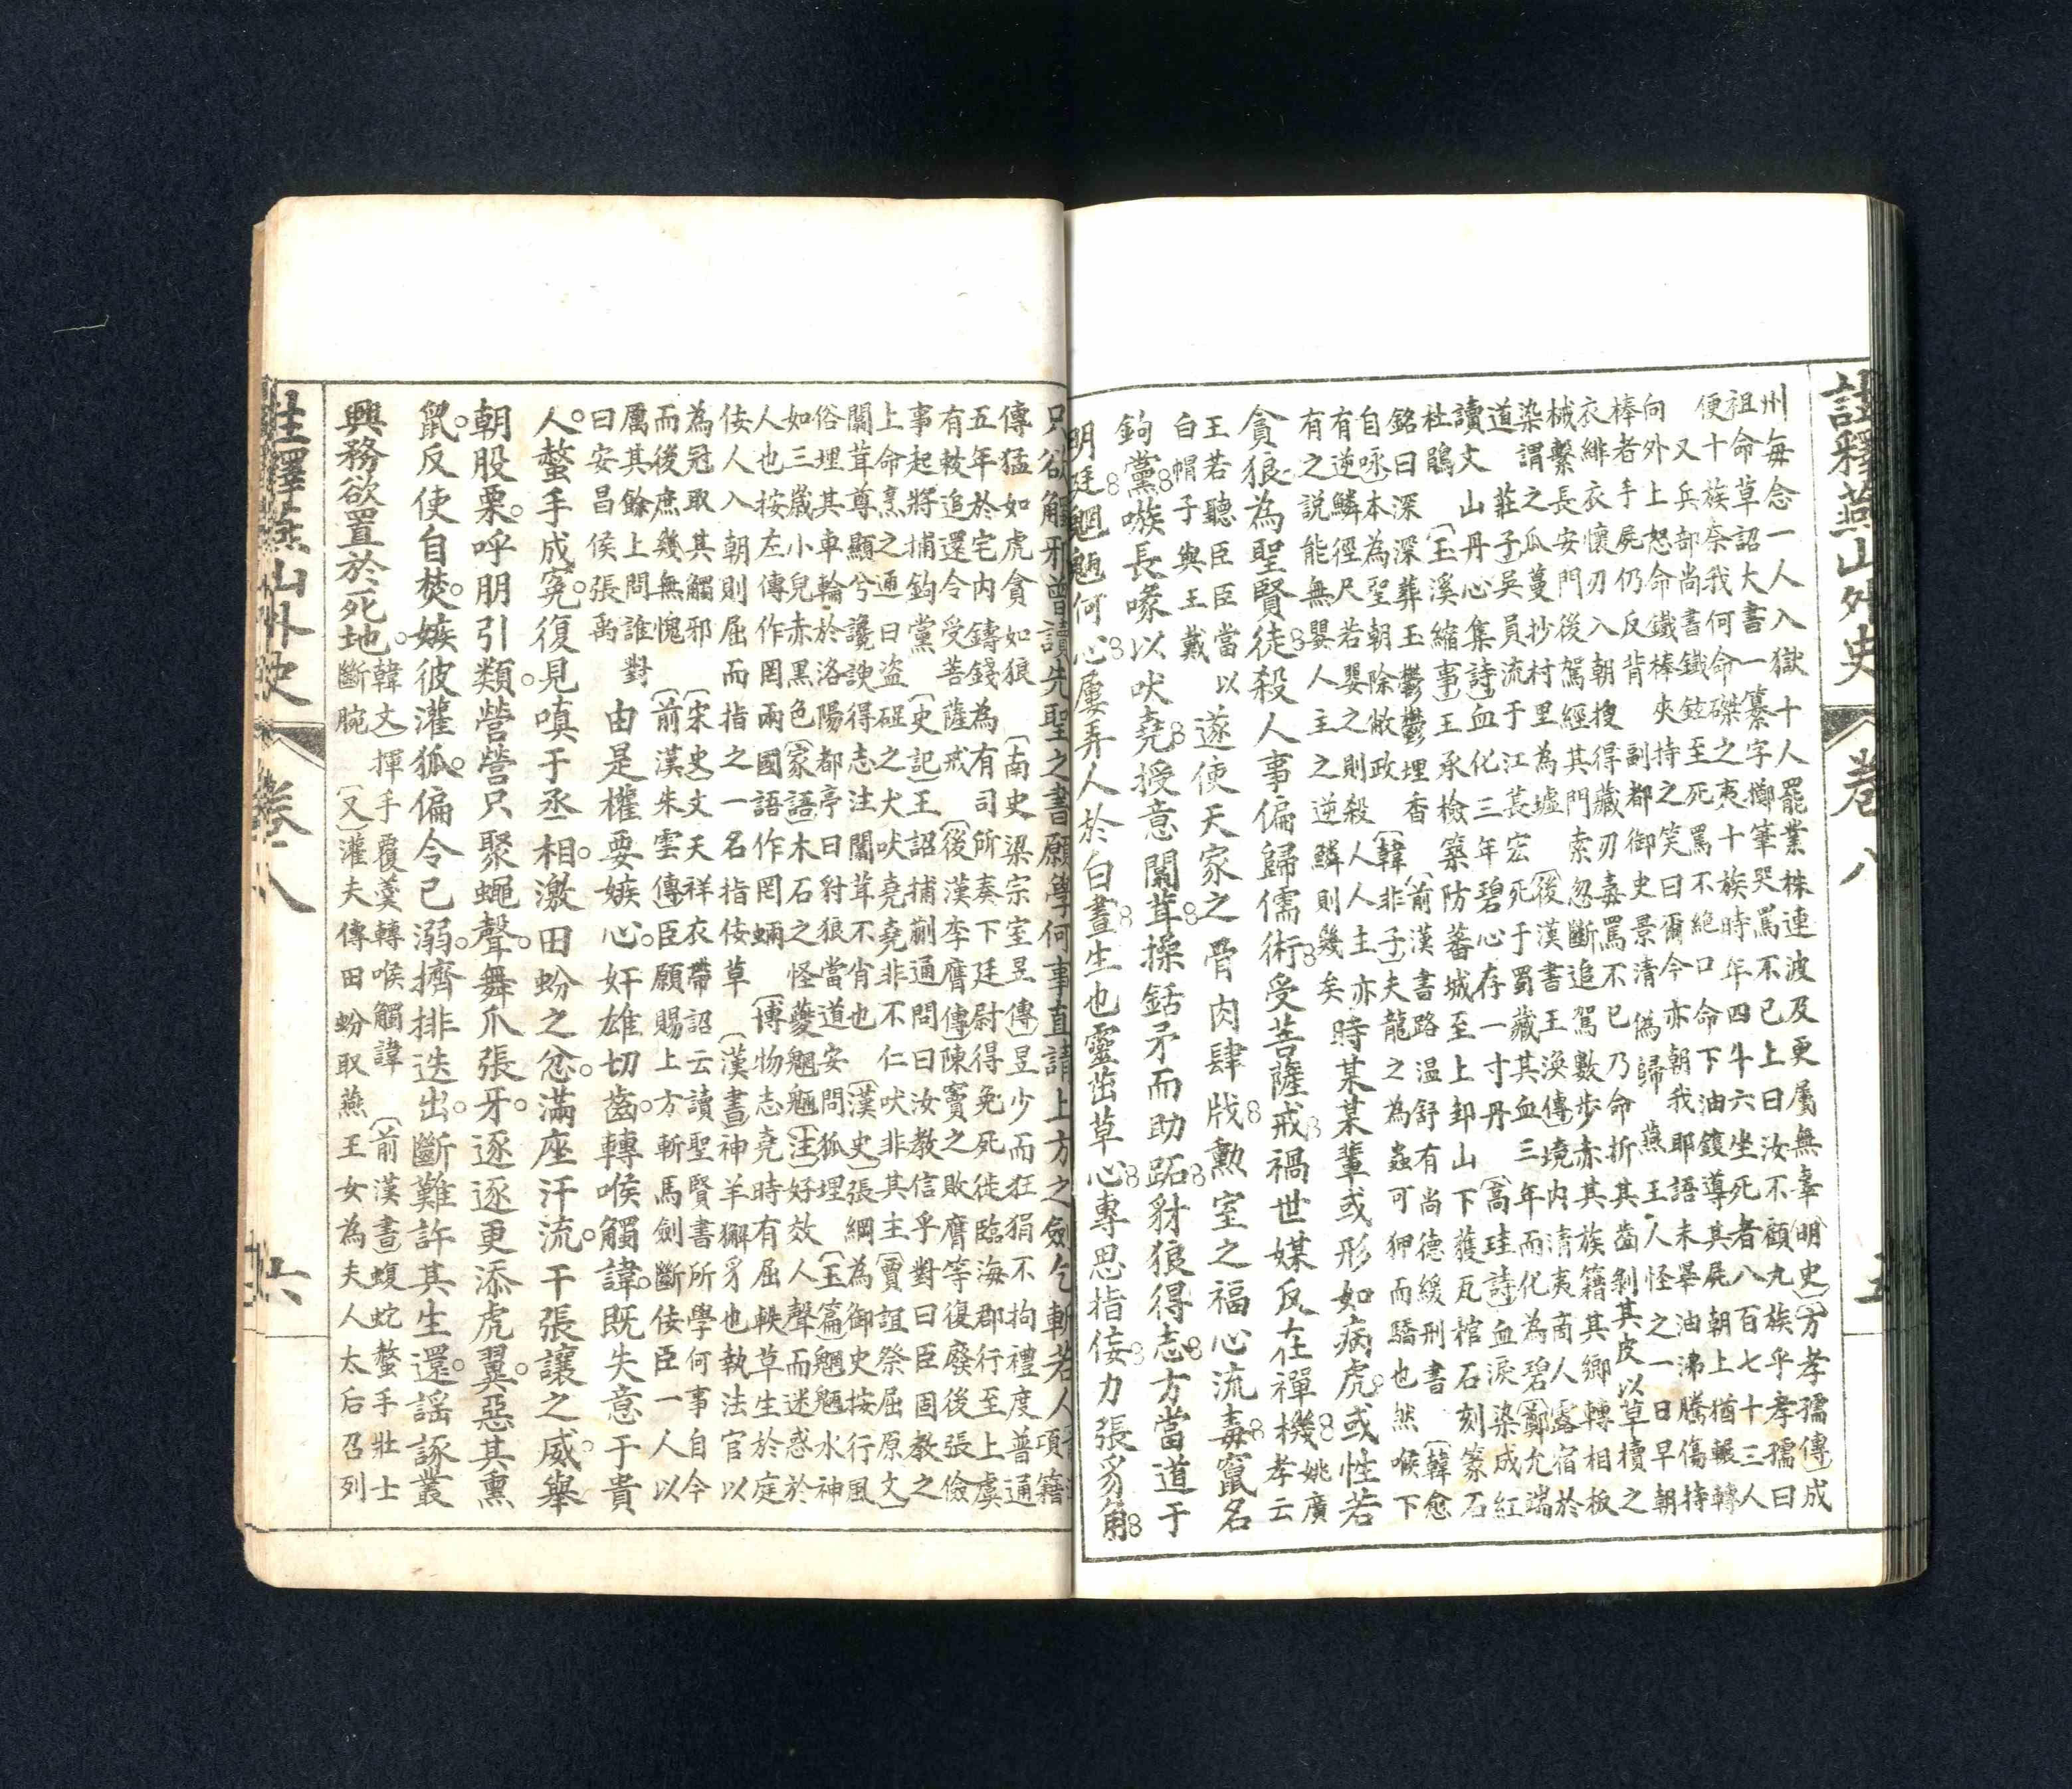 註釋燕山外史 卷八 五
州毎念一人入獄十人罷業株連波及更屬無辜〔明史〕〔方孝孺傳〕成
祖命草詔大書一篡字擲筆哭罵不已上曰汝不顧九族乎孝孺曰
便十族奈我何命磔之夷十族時年四十六坐死者八百七十三人
又兵部尚書鐵鉉至死罵不絕口命下油鑊導其屍朝上猶輾轉
向外上怒命鐵棒夾持之笑曰爾今亦朝我耶語未畢油沸騰傷持
棒者手屍仍反背 副都御史景清偽歸燕王人怪之一日早朝
衣緋衣懷刃入朝搜得藏刃毒罵不已乃命折其齒剝其皮以草櫝之
械繫長安門後駕經其門索忽斷追駕數步赤其族籍其鄉轉相板
染謂之瓜蔓抄村里為墟〔後漢書王渙傳〕境內清夷商人露宿於
道〔莊子〕吳員流于江萇宏死于蜀藏其血三年而化為碧〔鄭允端
讀文山丹心集詩〕血化三年碧心存一寸丹〔高珪詩〕血淚染成紅
杜鵑〔玉溪縮事〕王承檢築防蕃城至上邽山下獲瓦棺石刻篆石
銘曰深深葬玉鬱鬱埋香〔前漢書路温舒有尚德緩刑書〔韓愈
自咏〕本為聖朝除敝政〔韓非子〕夫龍之為蟲可狎而驕也然喉下
有逆鱗徑尺若嬰之則殺人人主亦
有之説能無嬰人主之逆鱗則幾矣
時某某輩或形如病虎或性若
貪狼為聖賢徒殺人事偏歸儒術受菩薩戒禍世媒反在禪機姚廣孝云
王若聽臣臣當以
白帽子與王戴
遂使天家之骨肉肆戕勲室之福心流毒竄名
鉤黨嗾長喙以吠堯授意闒茸操銛矛而助跖豺狼得志方當道于
明廷魍魎何心屢弄人於白晝生也靈茁草心專思指佞力張豸角
只欲觸邪曾讀先聖之書願學何事直請上方之劍乞斬若人項籍
傳猛如虎貪如狼〔南史梁宗室昱傳〕昱少而狂狷不拘禮度普通
五年於宅內鑄錢為有司所奏下廷尉得免死徙臨海郡行至上虞
有敕追還令受菩薩戒〔後漢李膺傳〕陳竇之敗膺等復廢後張儉
事起將捕鉤黨〔史記〕王詔捕蒯通問曰汝教信乎對曰臣固教之
上命烹之通曰盜跖之犬吠堯堯非不仁吠非其主〔賈誼祭屈原文〕
闒茸尊顯兮讒諛得志注闒茸不肖也〔漢史〕張綱為御史按行風
俗埋其車輪於洛陽都亭曰豺狼當道安問狐狸〔玉篇〕魍魎水神
如三歲小兒赤黑色〔家語〕木石之怪夔魍魎〔注〕好效人聲而迷惑於
人也按左傳作罔兩國語作罔蜽〔博物志〕堯時有屈軼草生於庭
佞人入朝則屈而指之一名指佞草〔漢書〕神羊獬豸也執法官以
為冠取其觸邪〔宋史〕文天祥衣帶詔云讀聖賢書所學何事自今
而後庶幾無愧〔前漢朱雲傳〕臣願賜上方斬馬劍斷佞臣一人以
厲其餘上問誰對
曰安昌侯張禹
由是權要嫉心。奸雄切齒。轉喉觸諱。既失意于貴
人。螫手成冤。復見嗔于丞相。激田蚡之忿。滿座汗流。干張讓之威。舉
朝股栗。呼朋引類。營營只聚蠅聲。舞爪張牙。逐逐更添虎翼。惡其熏
鼠。反使自焚。嫉彼灌狐。偏令己溺。擠排迭出。斷難許其生還。謠諑叢
興務欲置於死地。韓文〔揮手覆羹轉喉觸諱〔前漢書〕蝮蛇螫手壯士
斷腕〔又〕灌夫傳田蚡取燕王女為夫人太后召列
註釋燕山外史 卷八 六